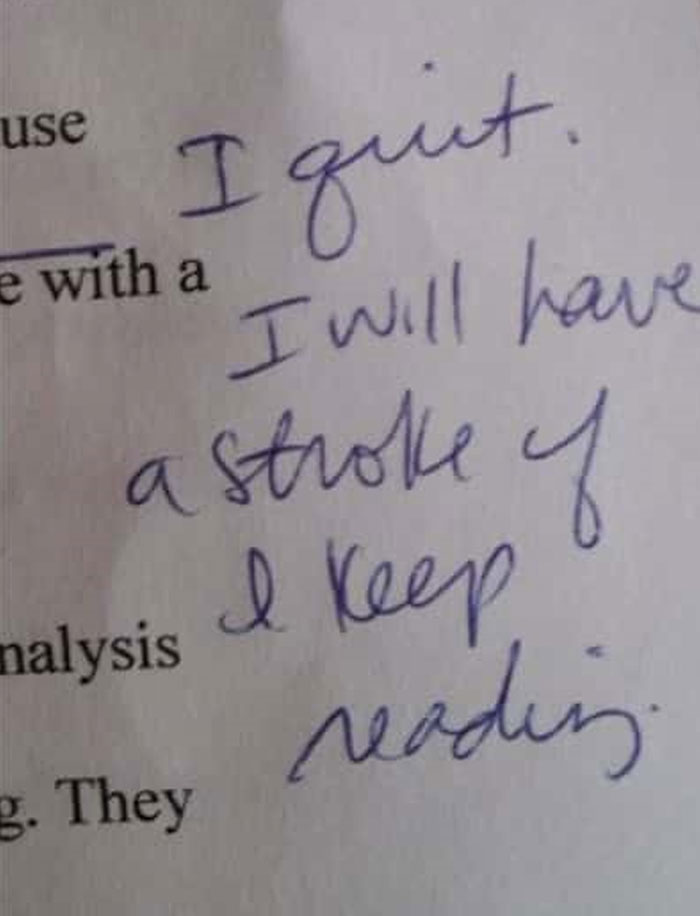 use
I quit.
e with a
I will have
a stroke if
I keep
nalysis
reading.
g. They